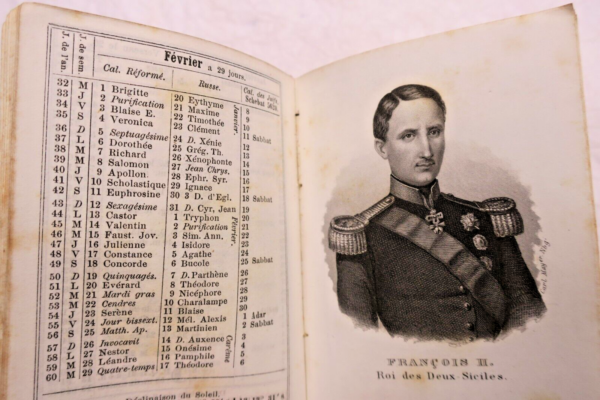 Février a 29 jours.
J. de l'an.
J. de sem.
Cal. Réformé.
Russe.
Cal. des Juifs.
Schebat
32 M 1 Brigitte 20 Eythyme 8
33 J 2 Purification 21 Maxime 9
34 V 3 Blaise E. 22 Timothée 10
35 S 4 Veronica 23 Clément 11 Sabbat
36 D 5 Septuagésime 24 D. Xénie 12
37 L 6 Dorothée 25 Grég. Th. 13
38 M 7 Richard 26 Xénophonte 14
39 M 8 Salomon 27 Jean Chrys. 15
40 J 9 Apollon 28 Ephr. Syr. 16
41 V 10 Scholastique 29 Ignace 17
42 S 11 Euphrosine 30 3 D. d'Egl. 18 Sabbat
43 D 12 Sexagésime 31 D. Cyr, Jean 19
44 L 13 Castor 1 Tryphon 20
45 M 14 Valentin 2 Purification 21
46 M 15 Faust. Jov. 3 Sim. Ann. 22
47 J 16 Julienne 4 Isidore 23
48 V 17 Constance 5 Agathe 24
49 S 18 Concorde 6 Bucole 25 Sabbat
50 D 19 Quinquagés. 7 D. Parthène 26
51 L 20 Evérard 8 Théodore 27
52 M 21 Mardi gras 9 Nicéphore 28
53 M 22 Cendres 10 Charalampe 29
54 J 23 Serène 11 Blaise 30
55 V 24 Jour bissext. 12 Mél. Alexis 1 Adar
56 S 25 Matth. Ap. 13 Martinien 2 Sabbat
57 D 26 Invocavit 14 D. Auxence 3
58 L 27 Nestor 15 Onésime 4
59 M 28 Léandre 16 Pamphile 5
60 M 29 Quatre-temps 17 Théodore 6
Janvier.
Février.
Carême
Déclinaison du Soleil.
FRANÇOIS II.
Roi des Deux-Siciles.